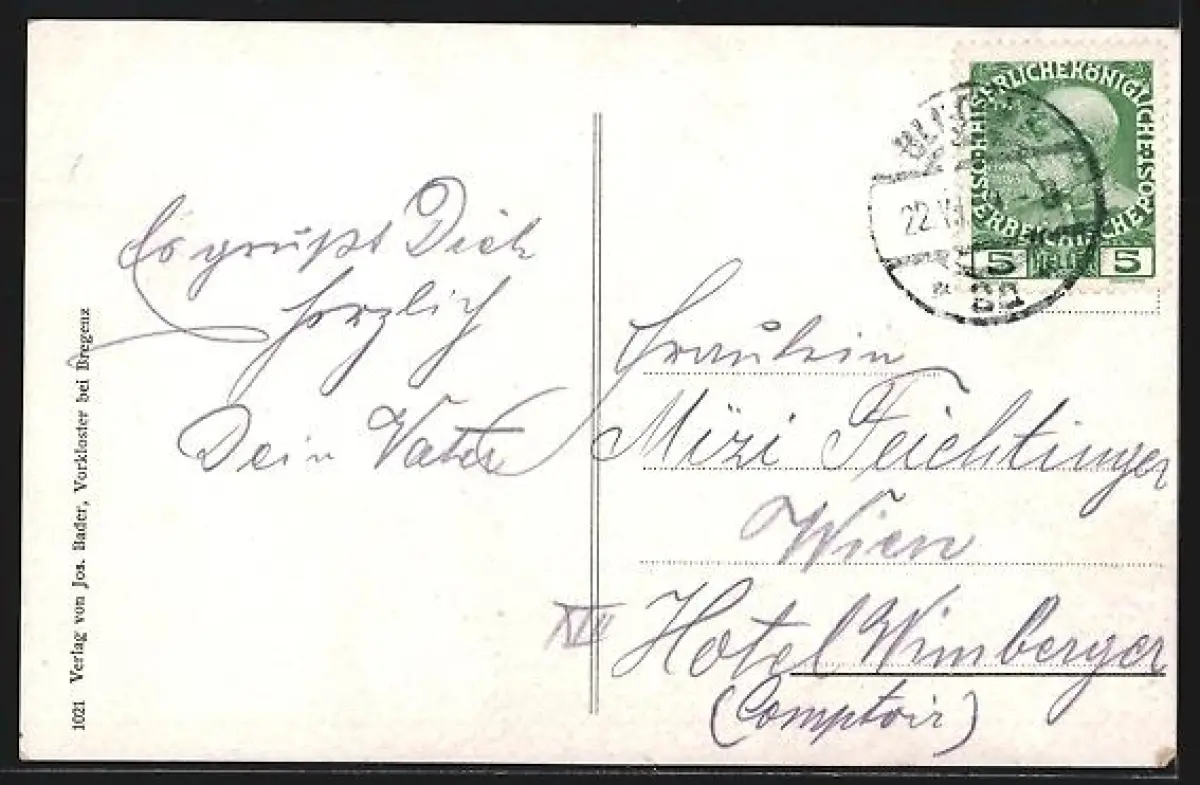 Es grüßt Dich
herzlich
Dein Vater
Fräulein
Mizi Feichtinger
Wien
Hotel Wimberger
(Comptoir)
1021 Verlag von Jos. Bader, Vorkloster bei Bregenz
KAISERLICHE KÖNIGLICHE ÖSTERREICHISCHE POST
5 HELLER 5
22